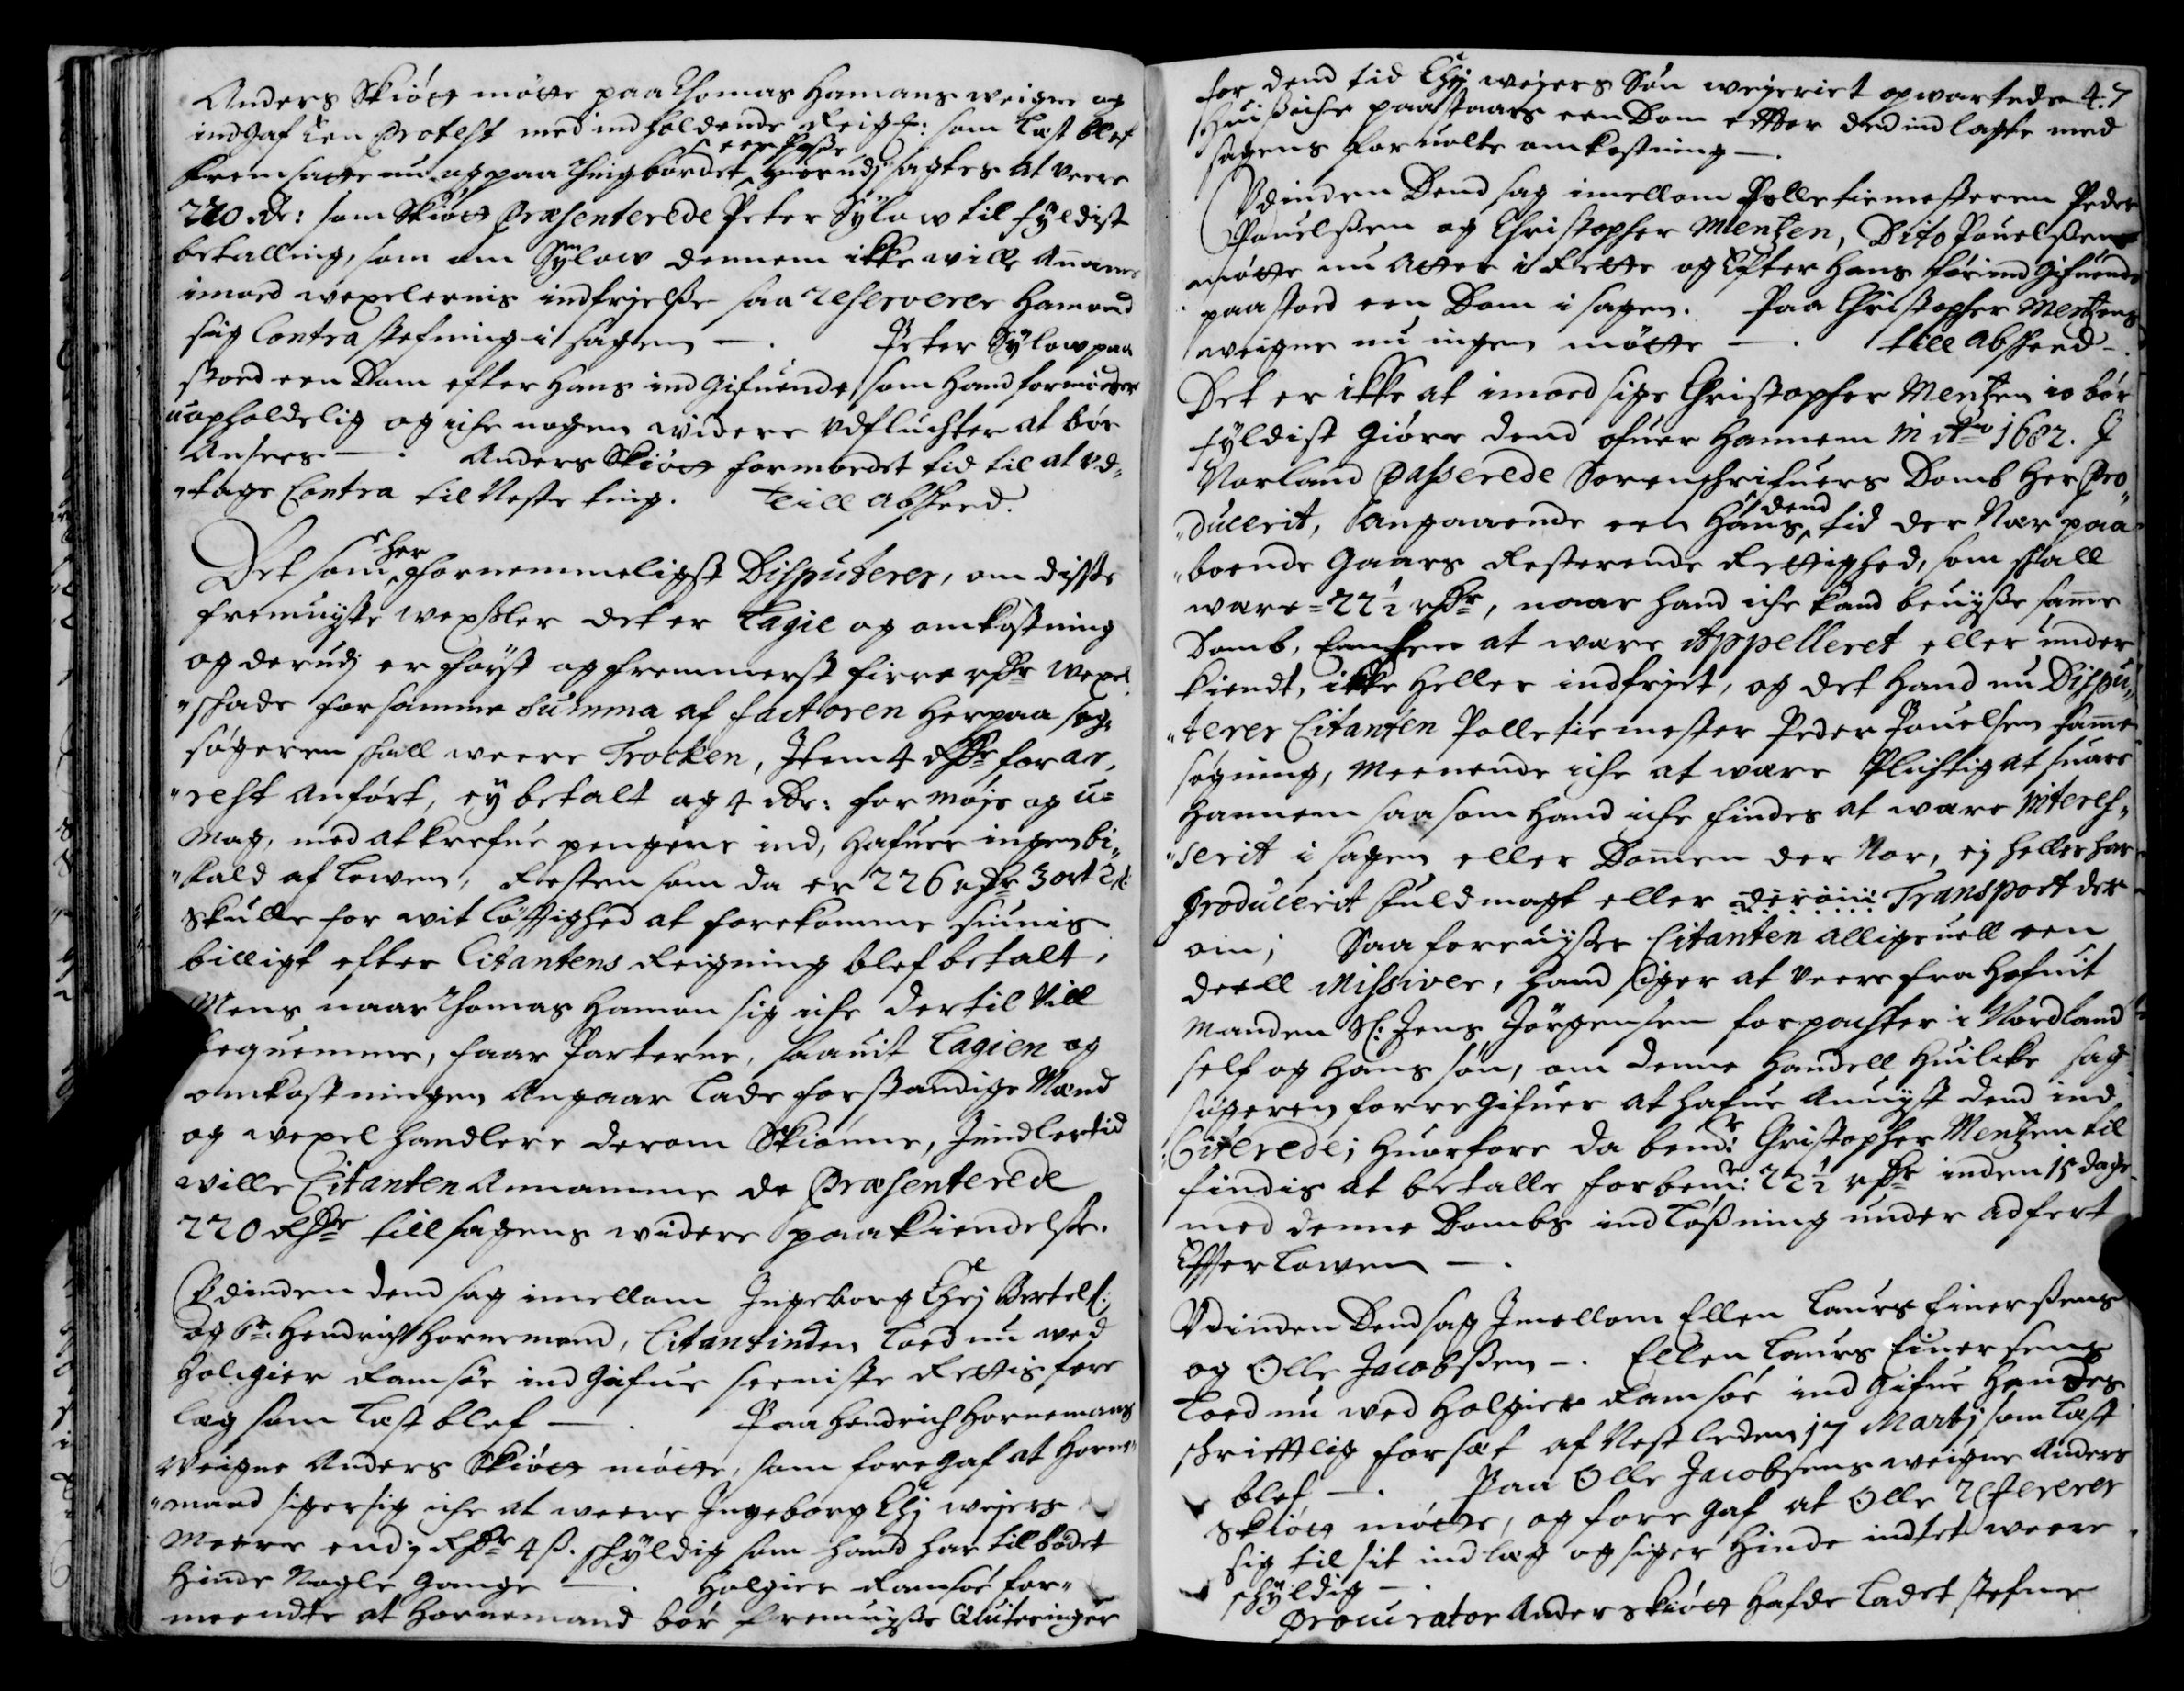 Anders Skiøtt møtte paa Thomas Hamans weigne og
indgaf den Protest med indholdende Reign: som læst blef
fremsatte nu og paa Thingbordet een posse huorudj sagtes at veere
220 rdr: som Skiøtt Præsenterede Peter Sylow til fyldist
betalling, som om Sylow dennem ikke wille Anname
imoed wexelernis indfrielse saa reserverer Hamand
sig Contra stefning i sagen —. Peter Sylow paa
stoed een Dom efter hans ind Gifuende som hand formoeder
uopholdelig og iche nogen widere Vdfluchter at bør
Ansees —. Anders Skiøtt formoedet tid til at vd„
„tage Contra til Neste ting. Till Afskeed.
Det som her fornemmeligst Disputeres, om disse
fremuiste wexsler det er Lagie og omkostning
og derudj er først og fremmerst fiire rdr wexel
„skade for samme Summa af factoren herpaa sag„
søgeren skall weere Trocken, Item 4 Rdr for ar„
„rest Anført, ey betalt og 4 Rdr: for møje og u=
mag, med at krefue pengene ind, hafuer ingen bi„
„fald af Lowen, Resten som da er 226 rdr 3 ort 2 s:
skulle for wit løftighed at forekomme siunis
billigt efter Citantens Reigning blef betalt,
Mens naar Thomas Haman sig iche dertil Vill
bequemme, faar Parterne, saauit Lagien og
omkostningen Angaar lade forstandige Mænd
og wexel handlere derom Skiønne, Jmidlertid
wille Citanten Annamme de Præsenterede
220 Rdr till sagens widere paakiendelse.
Vdinden dend sag imellom Ingeborg Chrj Bertels:
og Sr. Hendrich Hornemand, Citantinden loed nu wed
Holgier Ramsøe ind Gifue seeniste Rettis fore
læg som læst blef —. Paa Hendrich Hornemans
Weigne Anders Skiøtt møtte, som foregaf at Horne„
„mand siger sig iche at weere Ingeborg Chrj weiers
Meere end 7 Rdr 4 ß. schyldig som hand har tilbødet
hinde Nogle Gange —. Holgier Ramsøe for„
meendte at Hornemand bør fremuisse Quiteringer
for dend tid Chrj weiers Søn weyeriet opwartede 47
Huis iche paastaars een Dom efter dend indlagte med
sagens foruolte omkostning —.
Vdinden Dend sag imellom Polletiemesteren Peder
Pouelssen og Christopher Mentzen, Dito Pouelssen
møtte nu Atter i Rette og efter hans før ind Gifuende
paastoed een Dom i sagen. Paa Christopher Mentzens
weigne nu ingen møtte —. till Afskeed —.
Det er ikke at imoed sige Christopher Mentzen io bør
fyldist Giøre dend ofuer hannem in Ao 1682. I
Norland Passerede Sorenschrifuers Domb her Pro„
„ducerit, Angaaende een hans dend tid der Nær paa„
„boende Gaars Resterende Rettighed, som skall
ware = 22 1/2 rdr, naar hand iche kand beuisse samme
Domb, enchen at ware Appelleret eller under
kiendt, ikke heller indfriet, og det hand nu Dispu„
„terer Citanten Polletiemester Peder Pouelsen samme
søgning, meenende iche at ware Plichtig at suare
hannem saasom hand iche findes at ware interes„
„serit i sagen eller Dommen der Nor, ej heller har
produceret fuldmagt eller derom Transport der
om; Saa foreuisser Citanten alligeuell een
deell Missiver, hand siger at Veere fra hofuit
manden Sl: Jens Jørgensen forpachter i Nordland
self og hans søn, om denne handell huilcke sag
søgeren forregifuer at hafue Anuist dend ind
Citerede; huorfore da bemte Christopher Mentzen til
findis at betalle forbemte: 22 1/2 rdr inden 15 dage
med denne Dombs indløssning under adfert
Effter Lowen —.
Vdinden Dend sag Jmellom Ellen Laurs Einerssens
og Olle Jacobssen —. Ellen Laurs Einersens
loed nu wed Holgier Ramsøe ind Gifue hendes
schrifftlig forsæt af Nestleden 17 Martj som læst
blef —. Paa Olle Jacobsens weigne Anders
Skiøtt møtte, og fore gaf at Olle refererer
sig til sit indlæg og siger hinde indtet weere
schyldig —.
Procurator Anders Skiøtt hafde ladet stefne